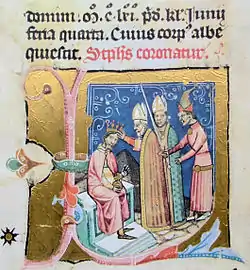 domini. m̊. c̊. lxi. p̊d. kl. Junij
feria quarta. Cuius corpꝰ albe
quiescit. Stephs coronatur.